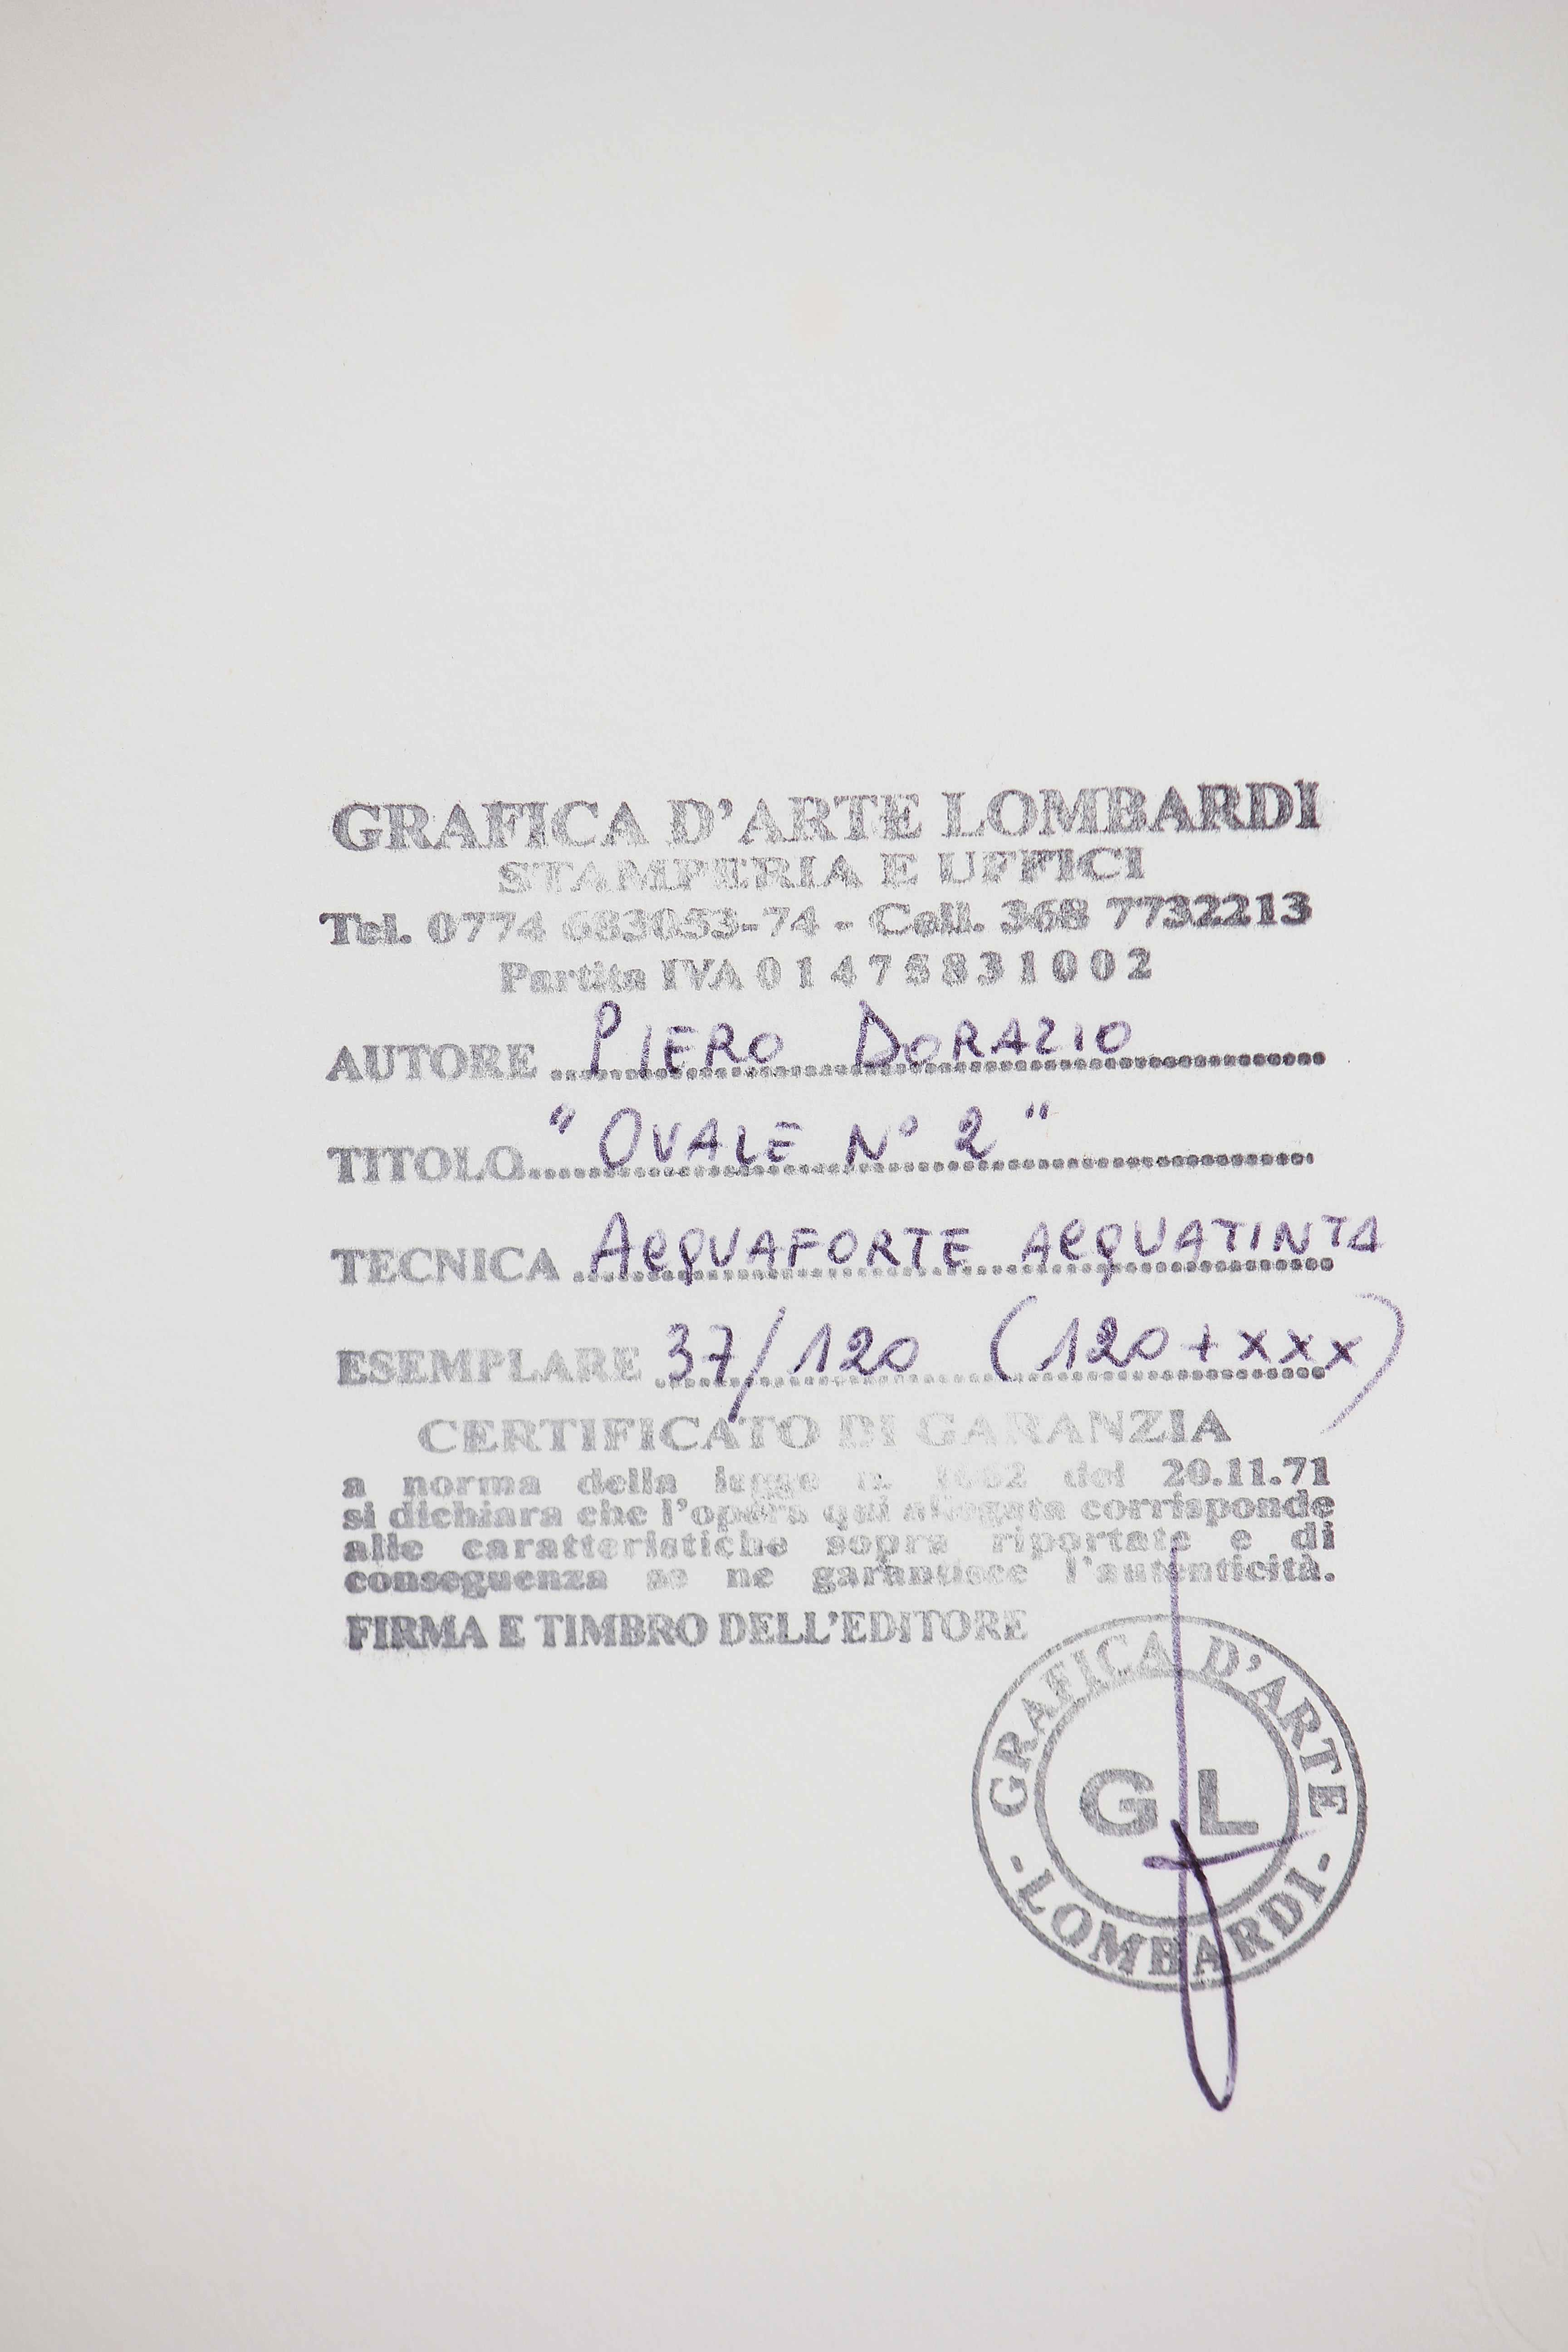 GRAFICA D'ARTE LOMBARDI
STAMPERIA E UFFICI
Tel. 0774 683053-74 - Cell. 368 7732213
Partita IVA
AUTORE PIERO DORAZIO
TITOLO "OVALE N° 2"
TECNICA ACQUAFORTE ACQUATINTA
ESEMPLARE 37/120 (120+XXX)
CERTIFICATO DI GARANZIA
a norma della legge n. 1062 del 20.11.71
si dichiara che l'opera qui allegata corrisponde
alle caratteristiche sopra riportate e di
conseguenza se ne garantisce l'autenticità.
FIRMA E TIMBRO DELL'EDITORE
GRAFICA D'ARTE
G L
- LOMBARDI -